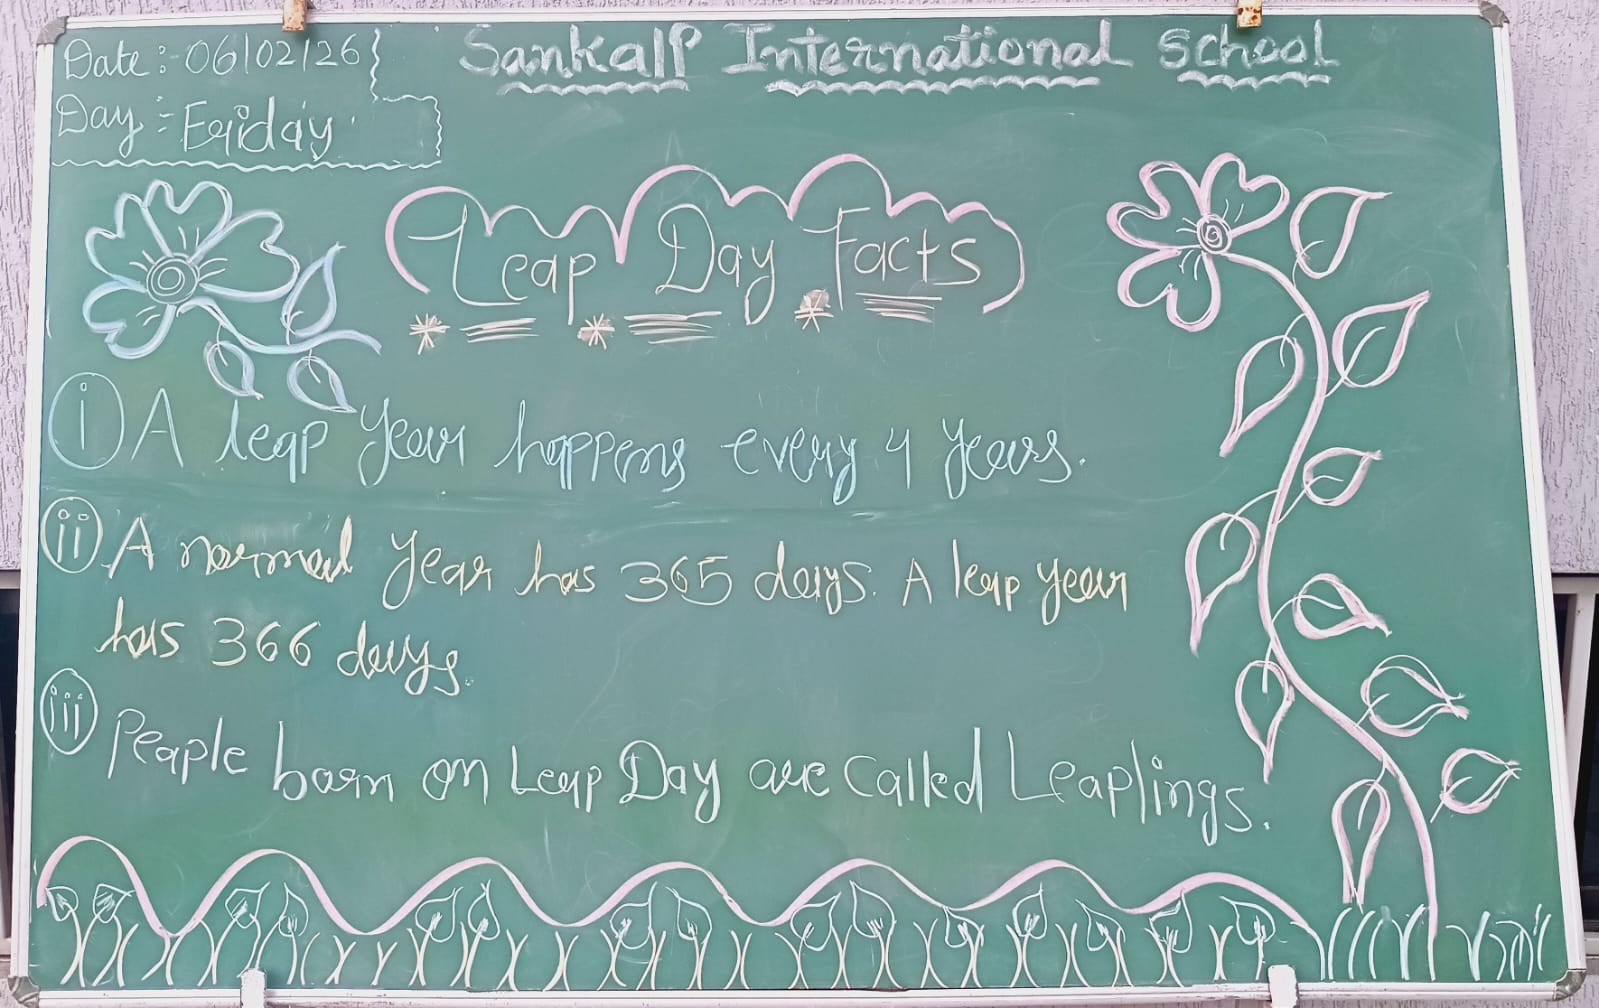 Date:- 06/02/26
Day:- Friday
Sankalp International School
Leap Day Facts
i A leap year happens every 4 years.
ii A normal year has 365 days. A leap year
has 366 days.
iii People born on Leap Day are called Leaplings.